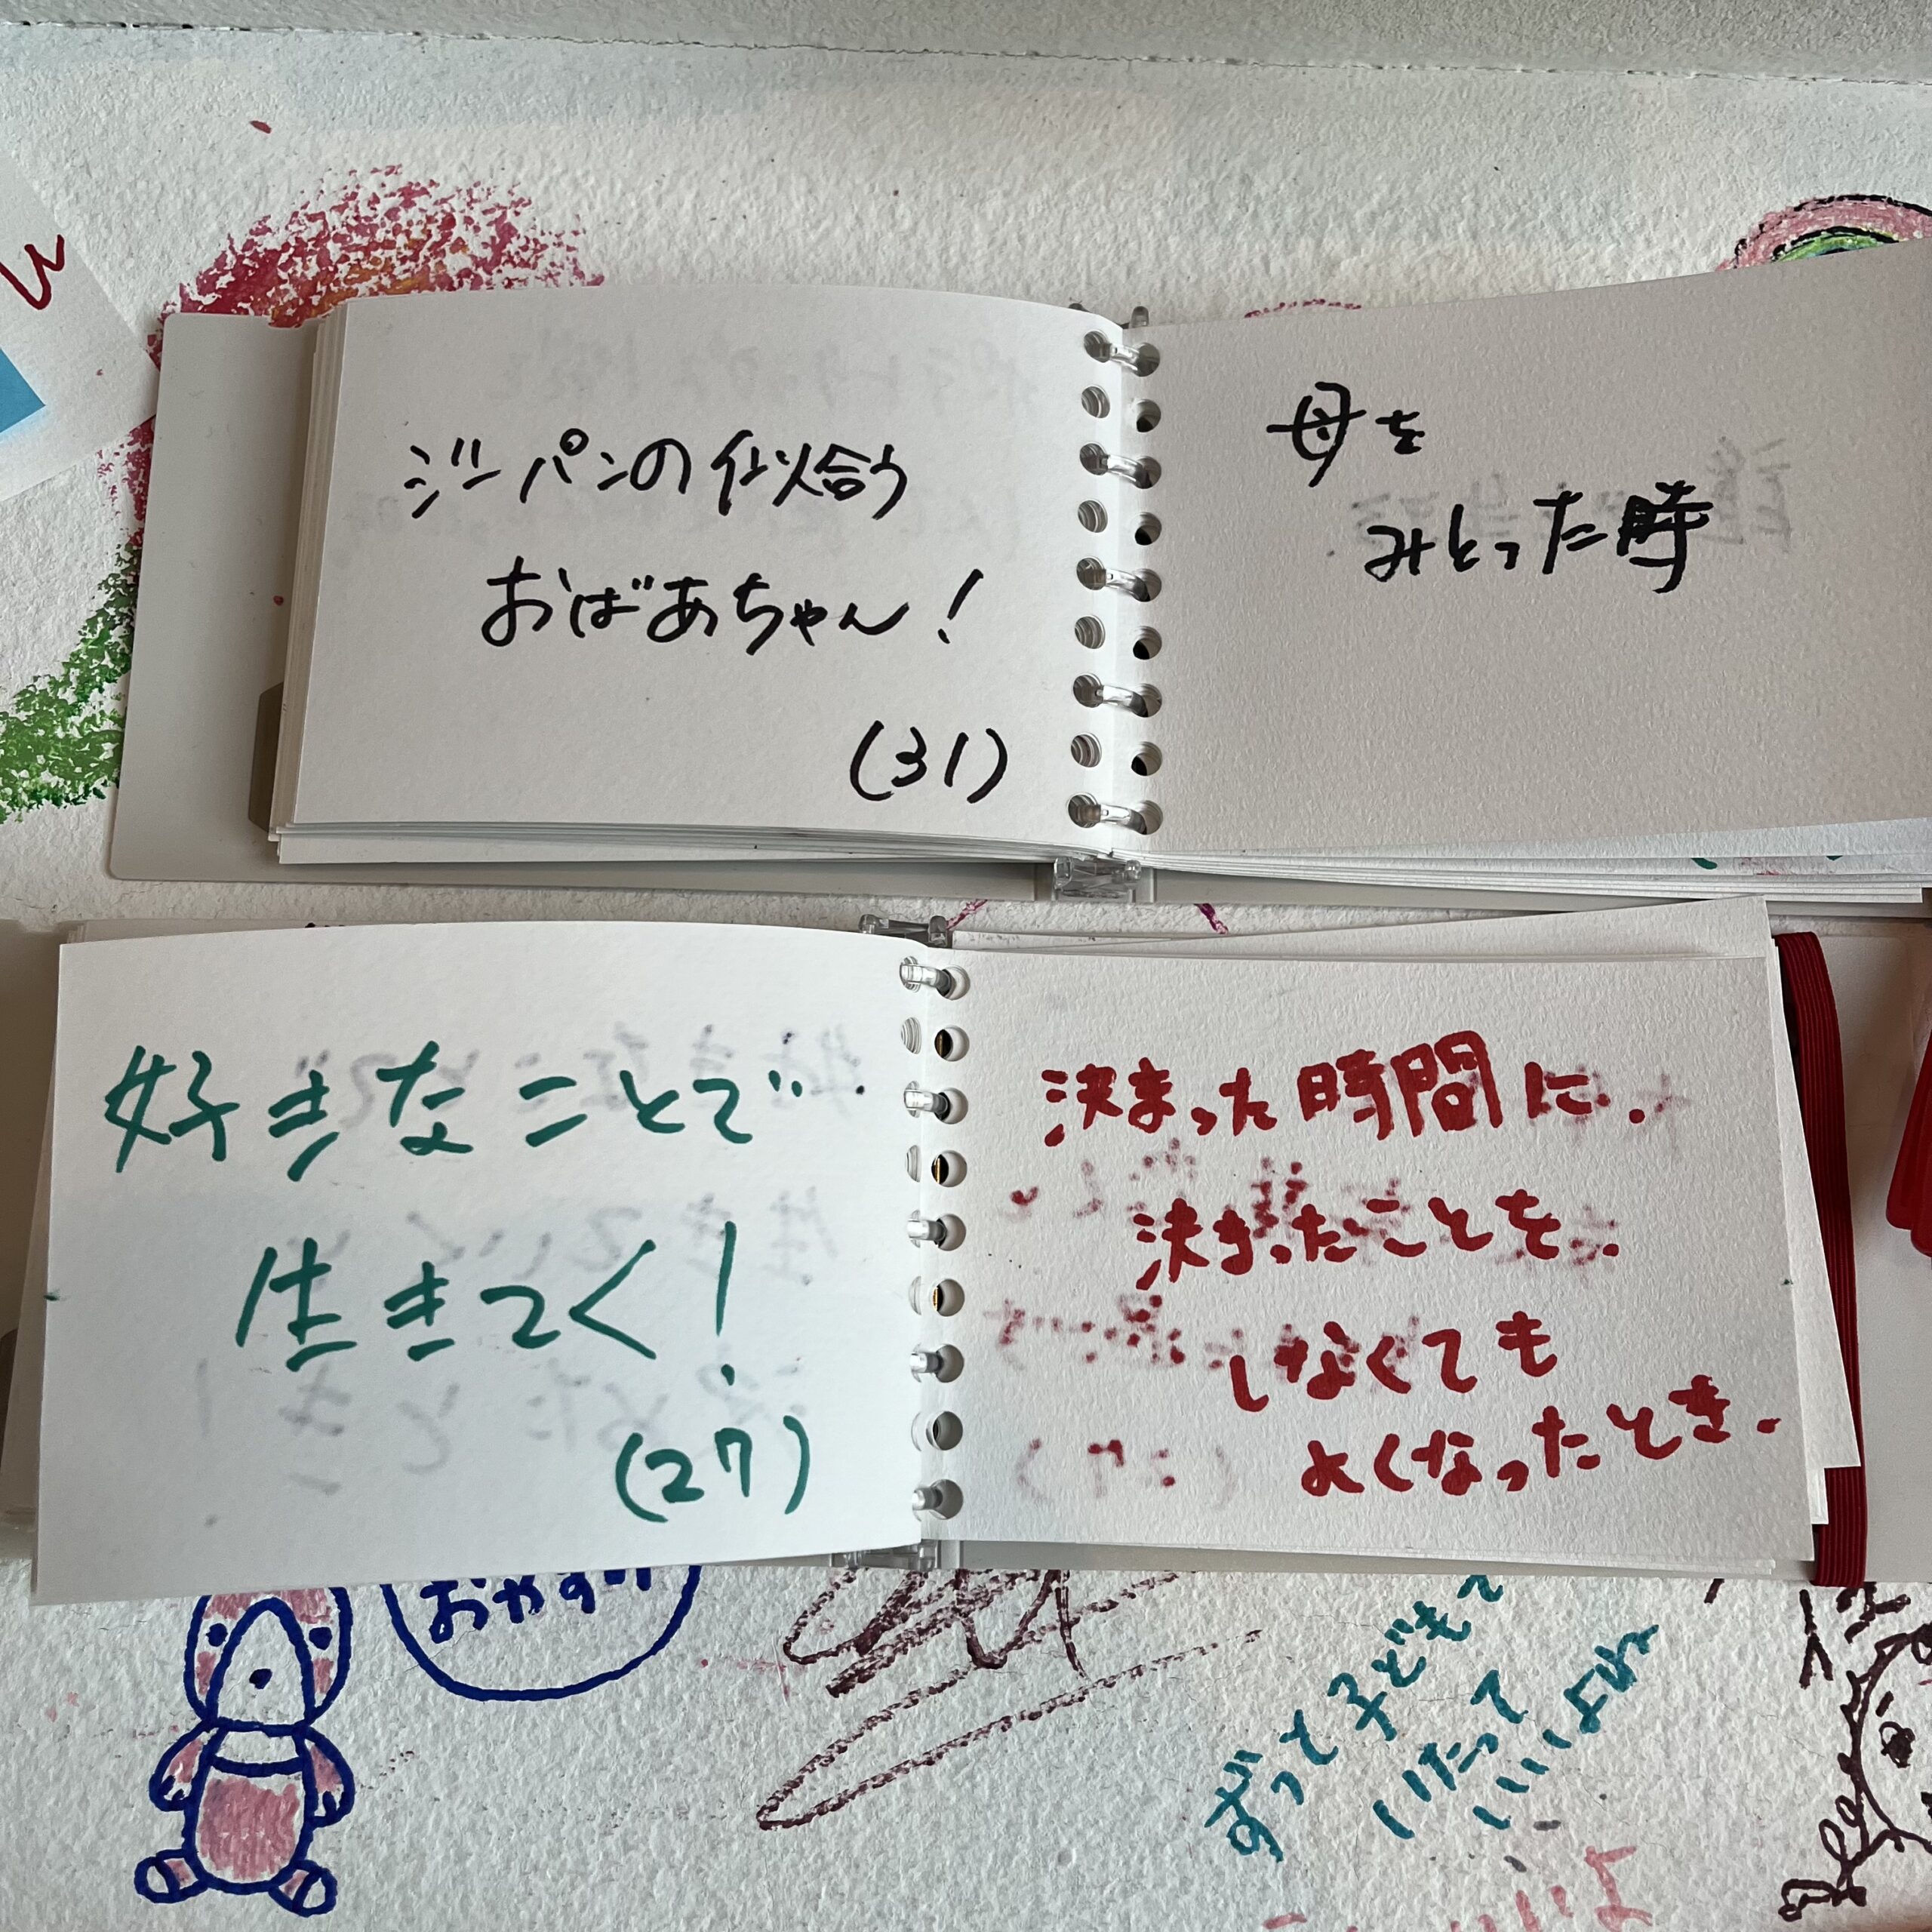 ジーパンの似合う
おばあちゃん!
(31)
母を
みとった時
好きなことで
生きてく!
(27)
決まった時間に.
決まったことを.
しなくても
よくなったとき.
おやすみ
ずっと子どもで
いたって
いいよね